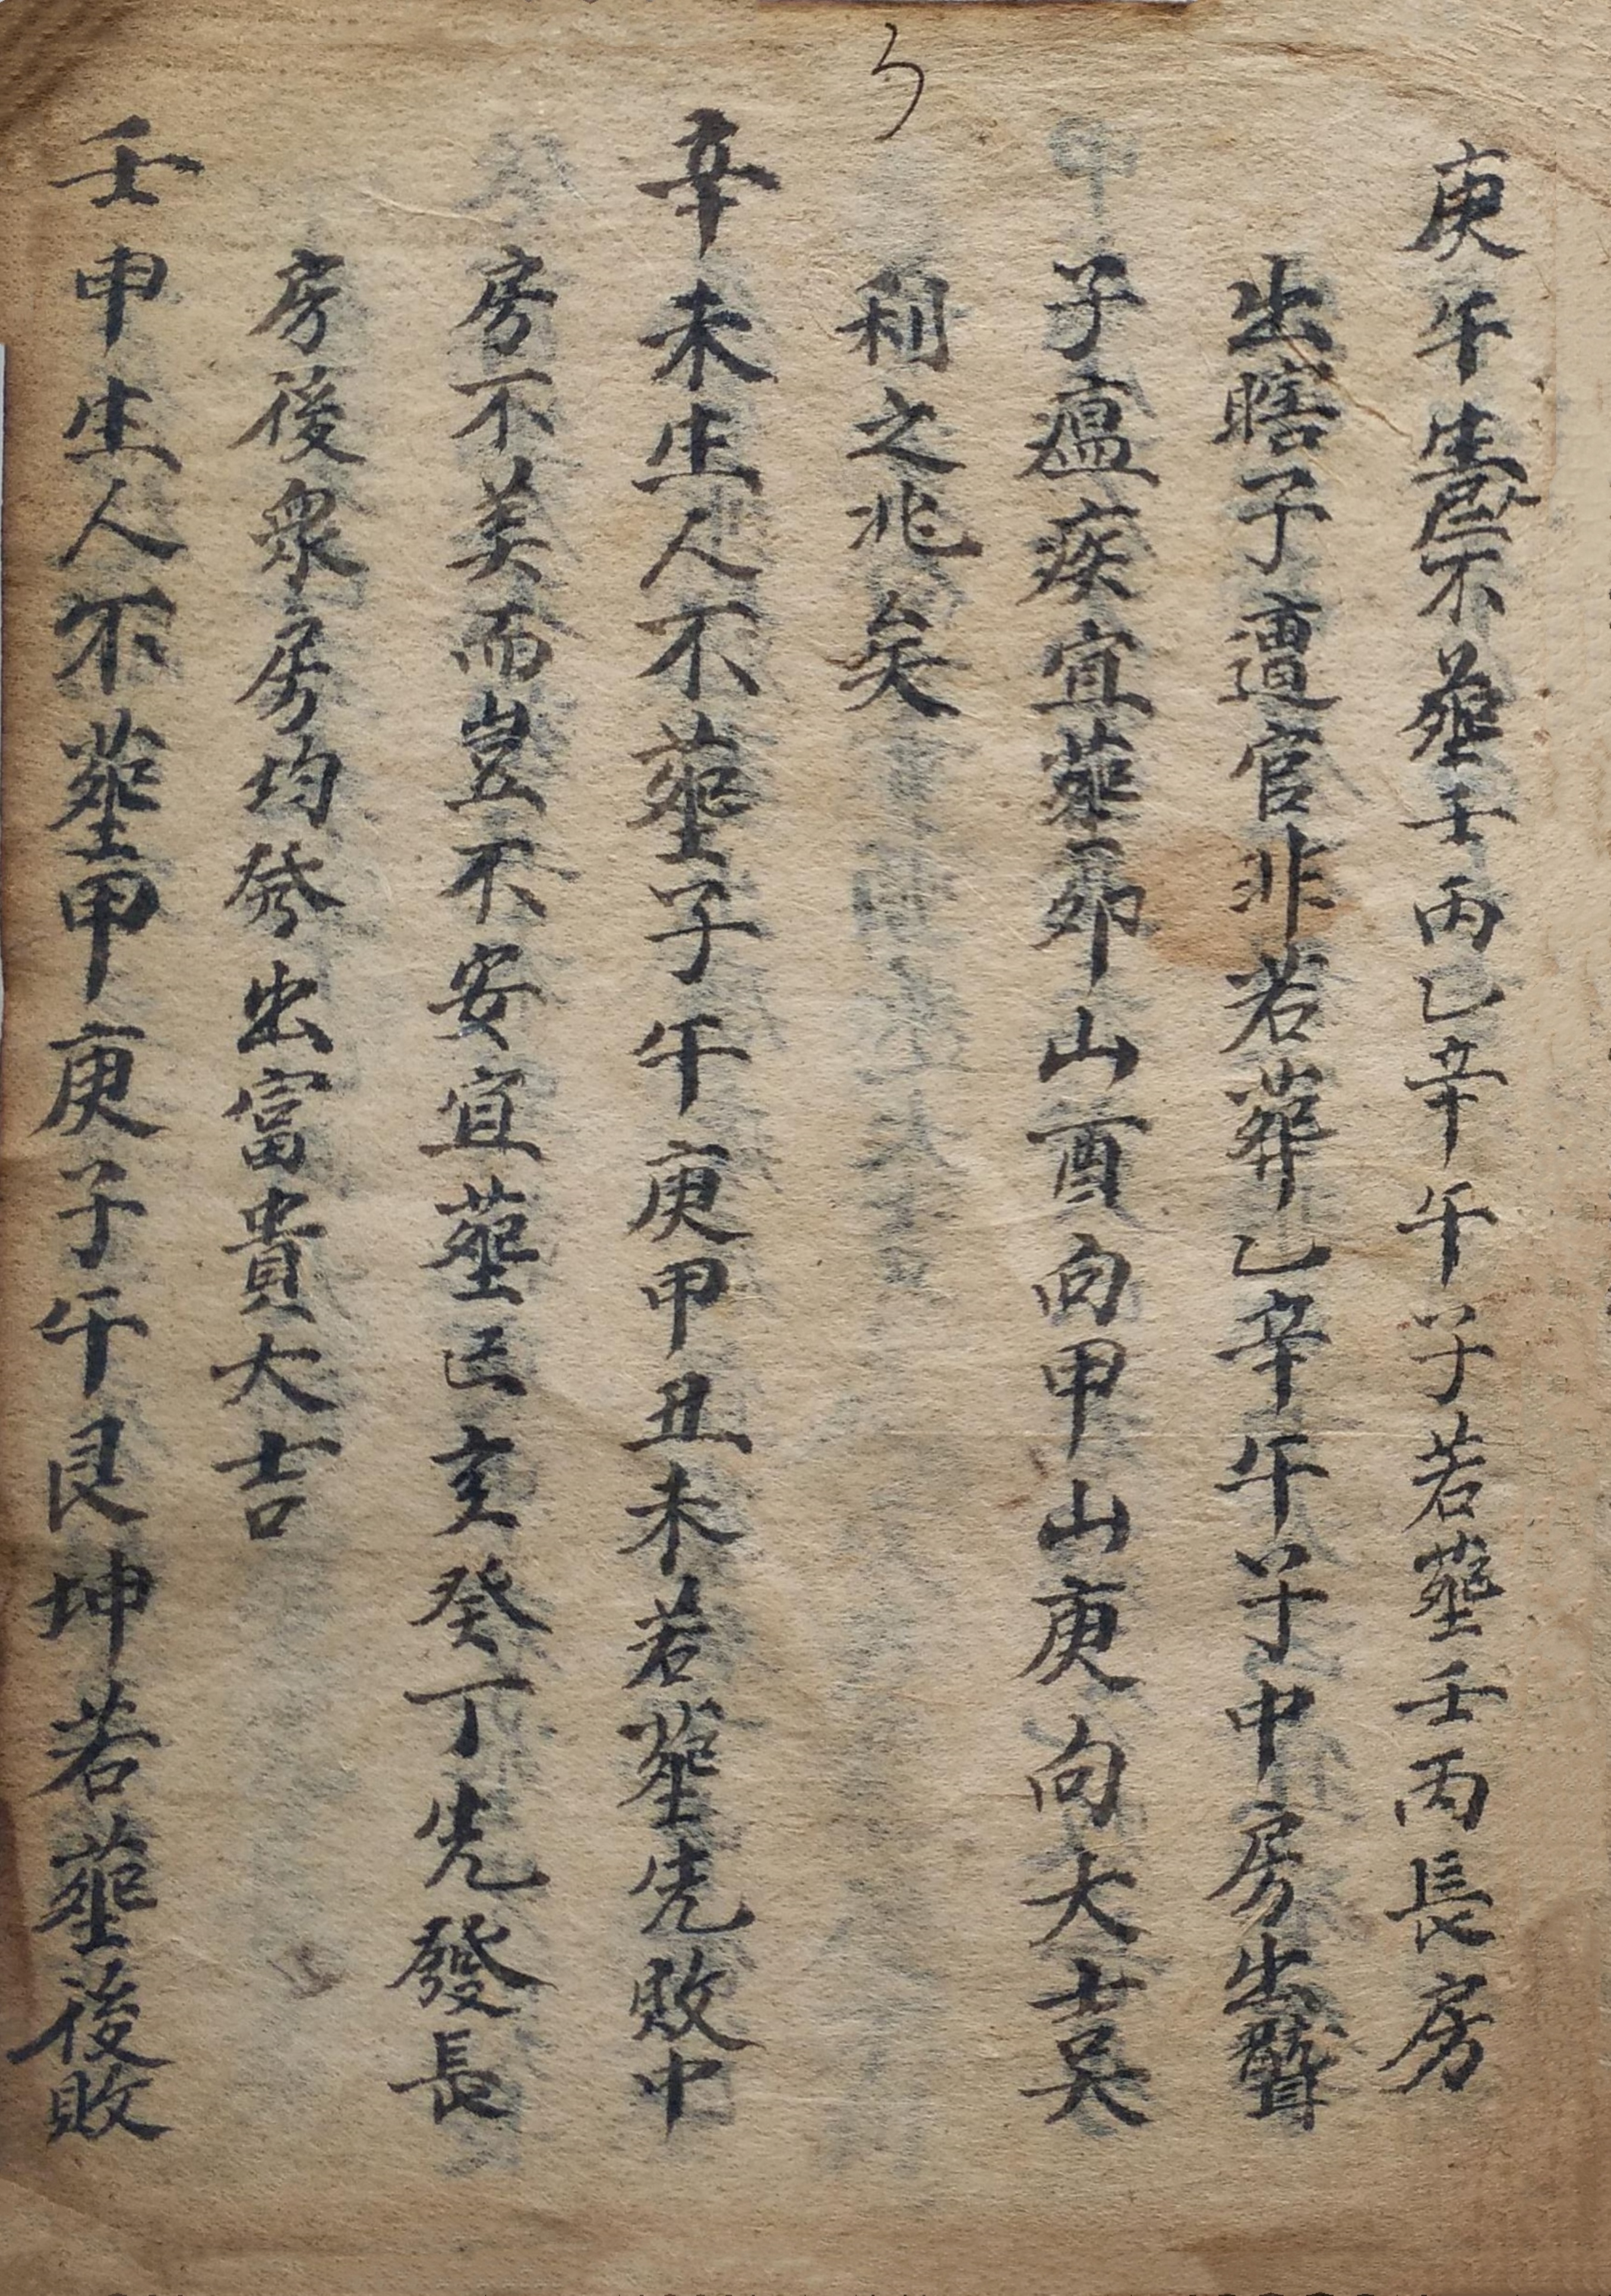 庚午生人不塟壬丙乙辛午子若塟壬丙長房
出瞎子遭官非若葬乙辛午子中房出聾
子瘟疾宜塟卯山酉向甲山庚向大吉
利之兆矣
辛未生人不塟子午庚甲丑未若塟先敗中
房不美而豈不安宜塟巳亥癸丁先發長
房後衆房均發出富貴大吉
壬申生人不塟甲庚子午艮坤若塟後敗